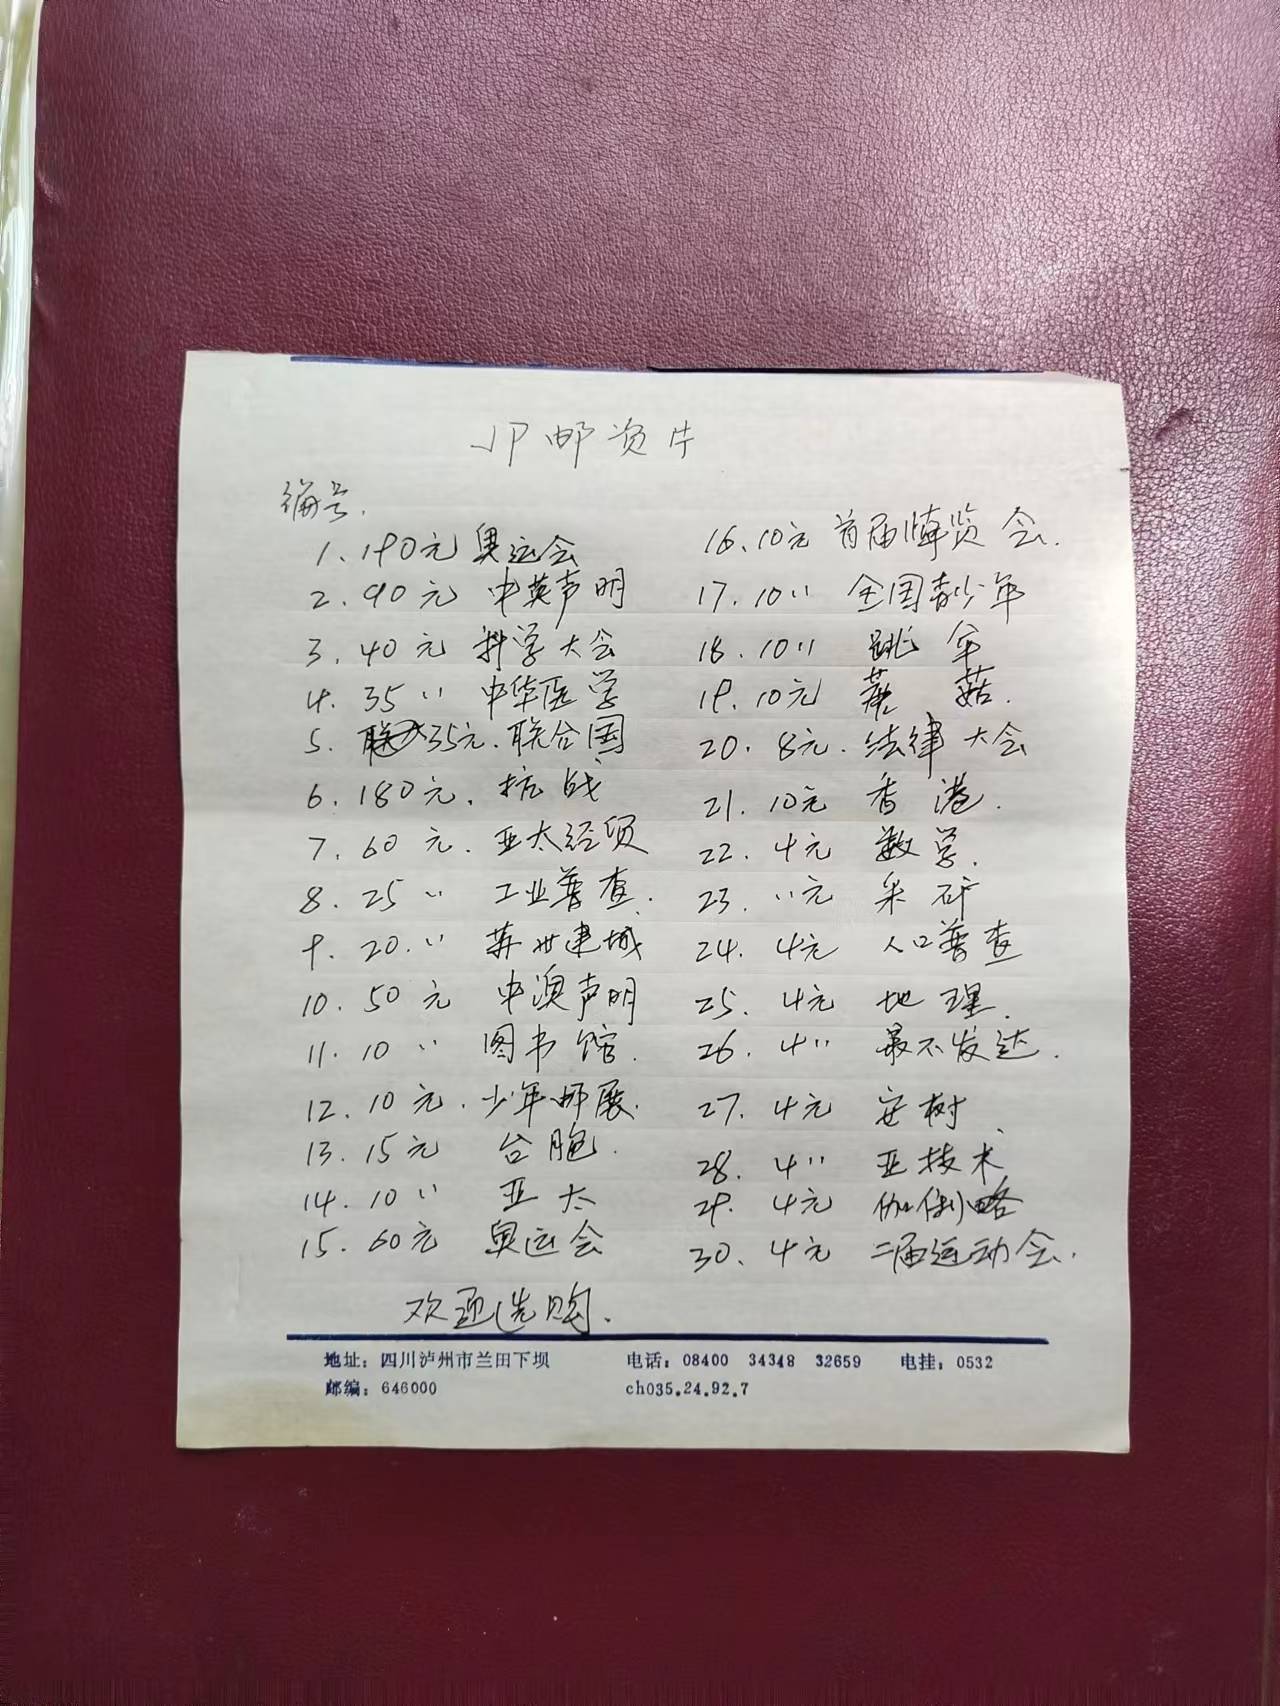 JP邮资片
编号.
1. 190元 奥运会
2. 90元 中英声明
3. 40元 科学大会
4. 35 〃 中华医学
5. 35元. 联合国
6. 180元. 抗战
7. 60元. 亚太经贸
8. 25 〃 工业普查.
9. 20. 〃 苏州建城
10. 50元 中澳声明
11. 10 〃 图书馆.
12. 10元. 少年邮展.
13. 15元 台胞.
14. 10 〃 亚太
15. 60元 奥运会
16. 10元 首届博览会.
17. 10 〃 全国青少年
18. 10 〃 跳伞
19. 10元 蘑菇.
20. 8元. 法律大会
21. 10元 香港.
22. 4元 数学.
23. 〃元 采矿
24. 4元 人口普查
25. 4元 地理.
26. 4 〃 最不发达.
27. 4元 安树.
28. 4 〃 亚技术
29. 4元 伽利略
30. 4元 二届运动会.
欢迎选购.
地址：四川泸州市兰田下坝 电话：08400 34348 32659 电挂：0532
邮编：646000 ch035.24.92.7